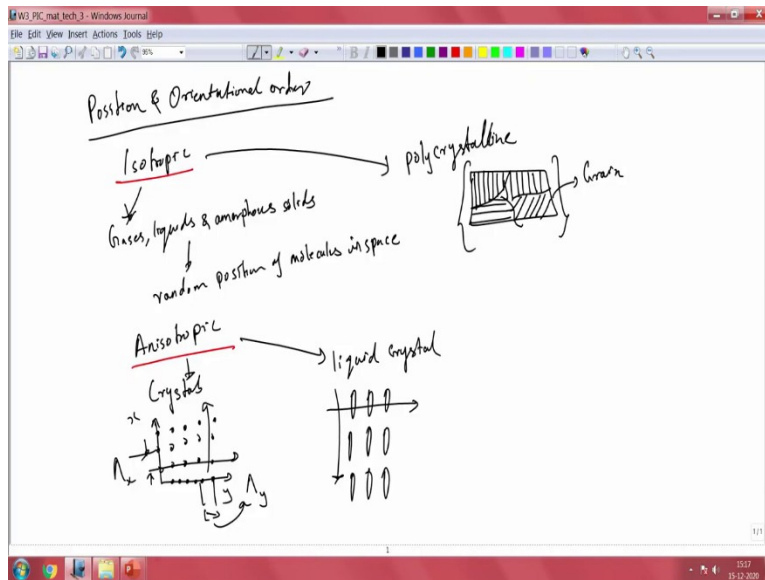 W3_PIC_mat_tech_3 - Windows Journal
File Edit View Insert Actions Tools Help
96%
B I
Position & Orientational order
Isotropic
polycrystalline
Grain
Gases, liquids & amorphous solids
random position of molecules in space
Anisotropic
liquid crystal
Crystals
x
Λx
y
Λy
1/1
1
15:17
15-12-2020